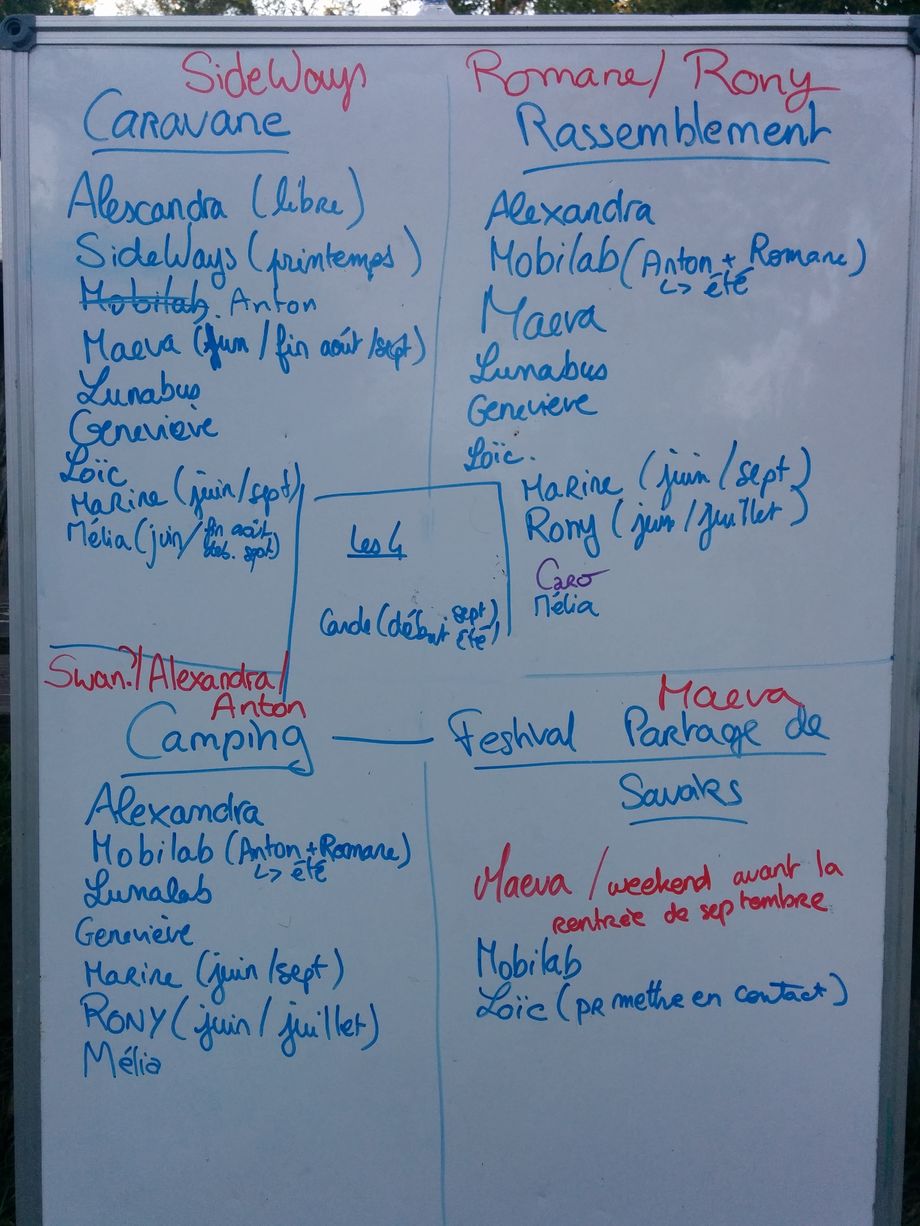 SideWays
Caravane
Alescandra (libre)
SideWays (printemps)
Mobilab. Anton
Maeva (juin / fin août / sept)
Lunabus
Geneviève
Loïc
Marine (juin / sept)
Mélia (juin / fin août
deb. sept)
Romane / Rony
Rassemblement
Alexandra
Mobilab (Anton + Romane)
↳ été
Maeva
Lunabus
Geneviève
Loïc.
Marine (juin / sept)
Rony (juin / juillet)
Caro
Mélia
Les 4
(début sept)
été)
Swan? / Alexandra /
Anton
Camping
Alexandra
Mobilab (Anton + Romane)
↳ été
Lunalab
Geneviève
Marine (juin / sept)
RONY (juin / juillet)
Mélia
Maeva
Festival Partage de
Savoirs
Maeva / weekend avant la
rentrée de septembre
Mobilab
Loïc (pr mettre en contact)